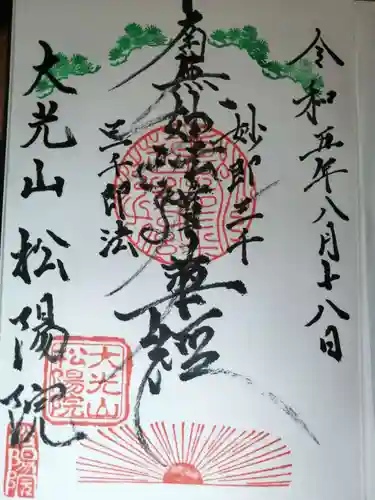 令和五年八月十八日
妙即三千
南無妙法蓮華経
三千即法
大光山 松陽院
大光山
松陽院